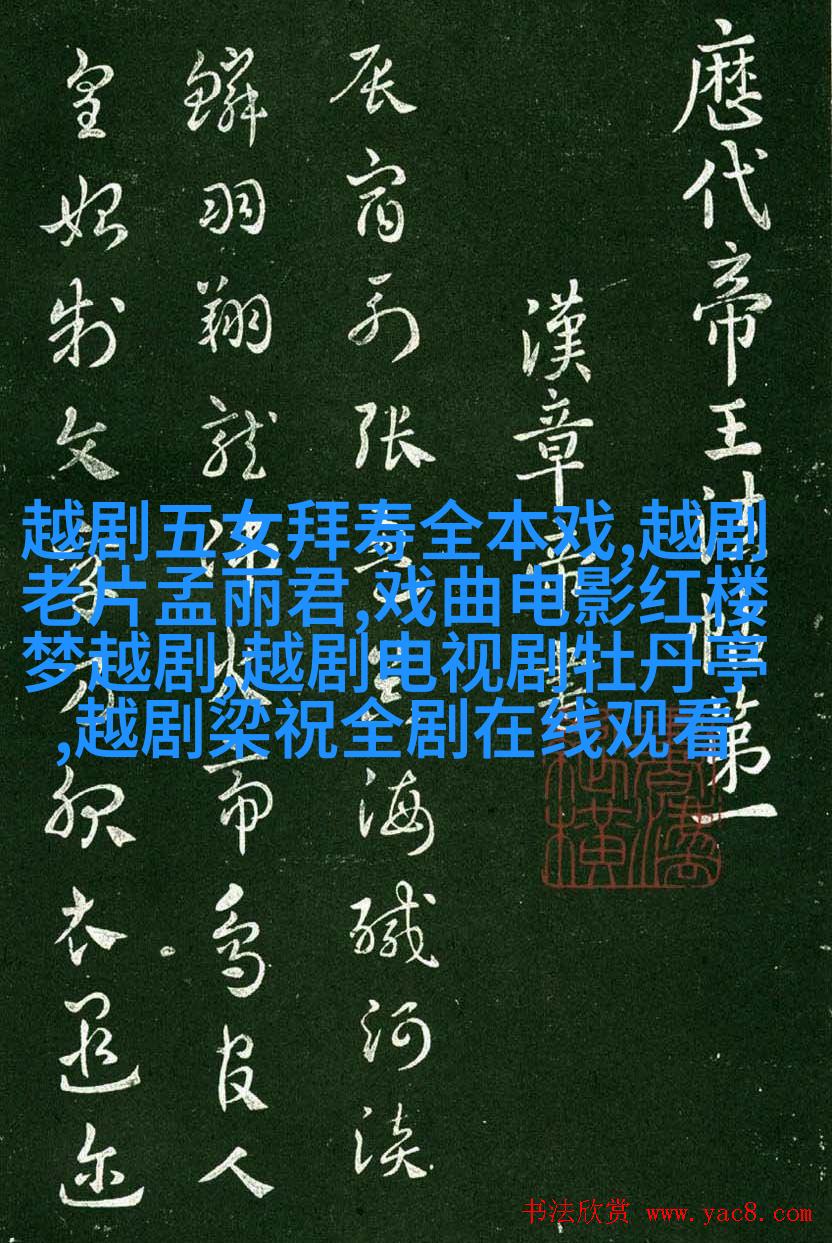 歷代帝王法帖第一
漢章帝書
辰宿列張
海鹹河淡
鱗羽翔龍師火帝鳥官人
皇始制文字乃服衣遐迩
越剧五女拜寿全本戏,越剧
老片孟丽君,戏曲电影红楼
梦越剧,越剧电视剧牡丹亭
,越剧梁祝全剧在线观看
书法欣赏 www.yac8.com